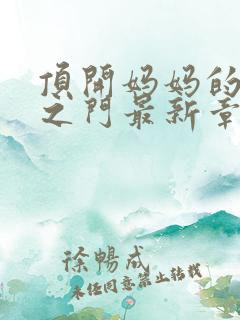 頂開妈妈的
之门最新章
徐暢成
未经同意禁止转载